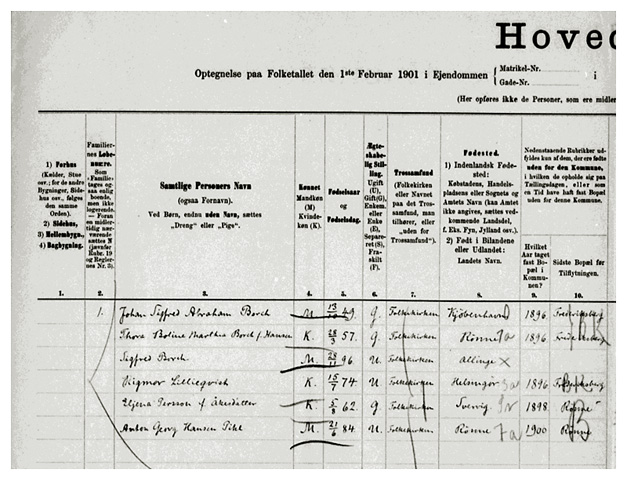 Hoved
Optegnelse paa Folketallet den 1ste Februar 1901 i Ejendommen { Matrikel-Nr. i
Gade-Nr.
(Her opføres ikke de Personer, som ere midler
1) Forhus (Kælder, Stue osv.; for de andre Bygninger, Sidehus osv., følges den samme Orden). 2) Sidehus, 3) Mellembygn., 4) Bagbygning.
Familiernes Løbenumere.
Samtlige Personers Navn (ogsaa Fornavn). Ved Børn, endnu uden Navn, sættes "Dreng" eller "Pige".
Kønnet Mandkøn (M) Kvindekøn (K).
Fødselsaar og Fødselsdag.
Ægteskabelig Stilling. Ugift (U), Gift(G), Enkemand eller Enke (E), Separeret (S), Fraskilt (F).
Trossamfund (Folkekirken eller Navnet paa det Trossamfund, man tilhører, eller "uden for Trossamfund").
Fødested. 1) Indenlandsk Fødested: Købstadens, Handelspladsens eller Sognets og Amtets Navn (kan Amtet ikke angives, sættes vedkommende Landsdel, f. Eks. Fyn, Jylland osv.). 2) Født i Bilandene eller Udlandet: Landets Navn.
Nedenstaaende Rubrikker udfyldes kun af dem, der ere fødte uden for den Kommune, i hvilken de opholde sig paa Tællingsdagen, eller som en Tid have haft fast Bopæl uden for denne Kommune.
Hvilket Aar taget fast Bopæl i Kommunen?
Sidste Bopæl før Tilflytningen.
1. 2. 3. 4. 5. 6. 7. 8. 9. 10.
1. Johan Sigfred Abraham Borch M. 49. G. Folkekirken Kjöbenhavn 1896. Frederiksberg
Thora Boline Martha Borch f. Hansen K. 28/3 57. G. Folkekirken Rönne 1896 Frederiksberg
Sigfred Borch M. 28/11 96 U. Folkekirken Allinge x
Vigmor Lillieqvist K. 15/7 74 U. Folkekirken Helsingör 1896 Frederiksberg
Persson f. Åkesdatter K. 5/8 62. G. Folkekirken Sverrig 1898. Rönne
Anton Georg Hansen Pihl M. 21/6 84 U. Folkekirken Rönne 7a 1900 Rönne